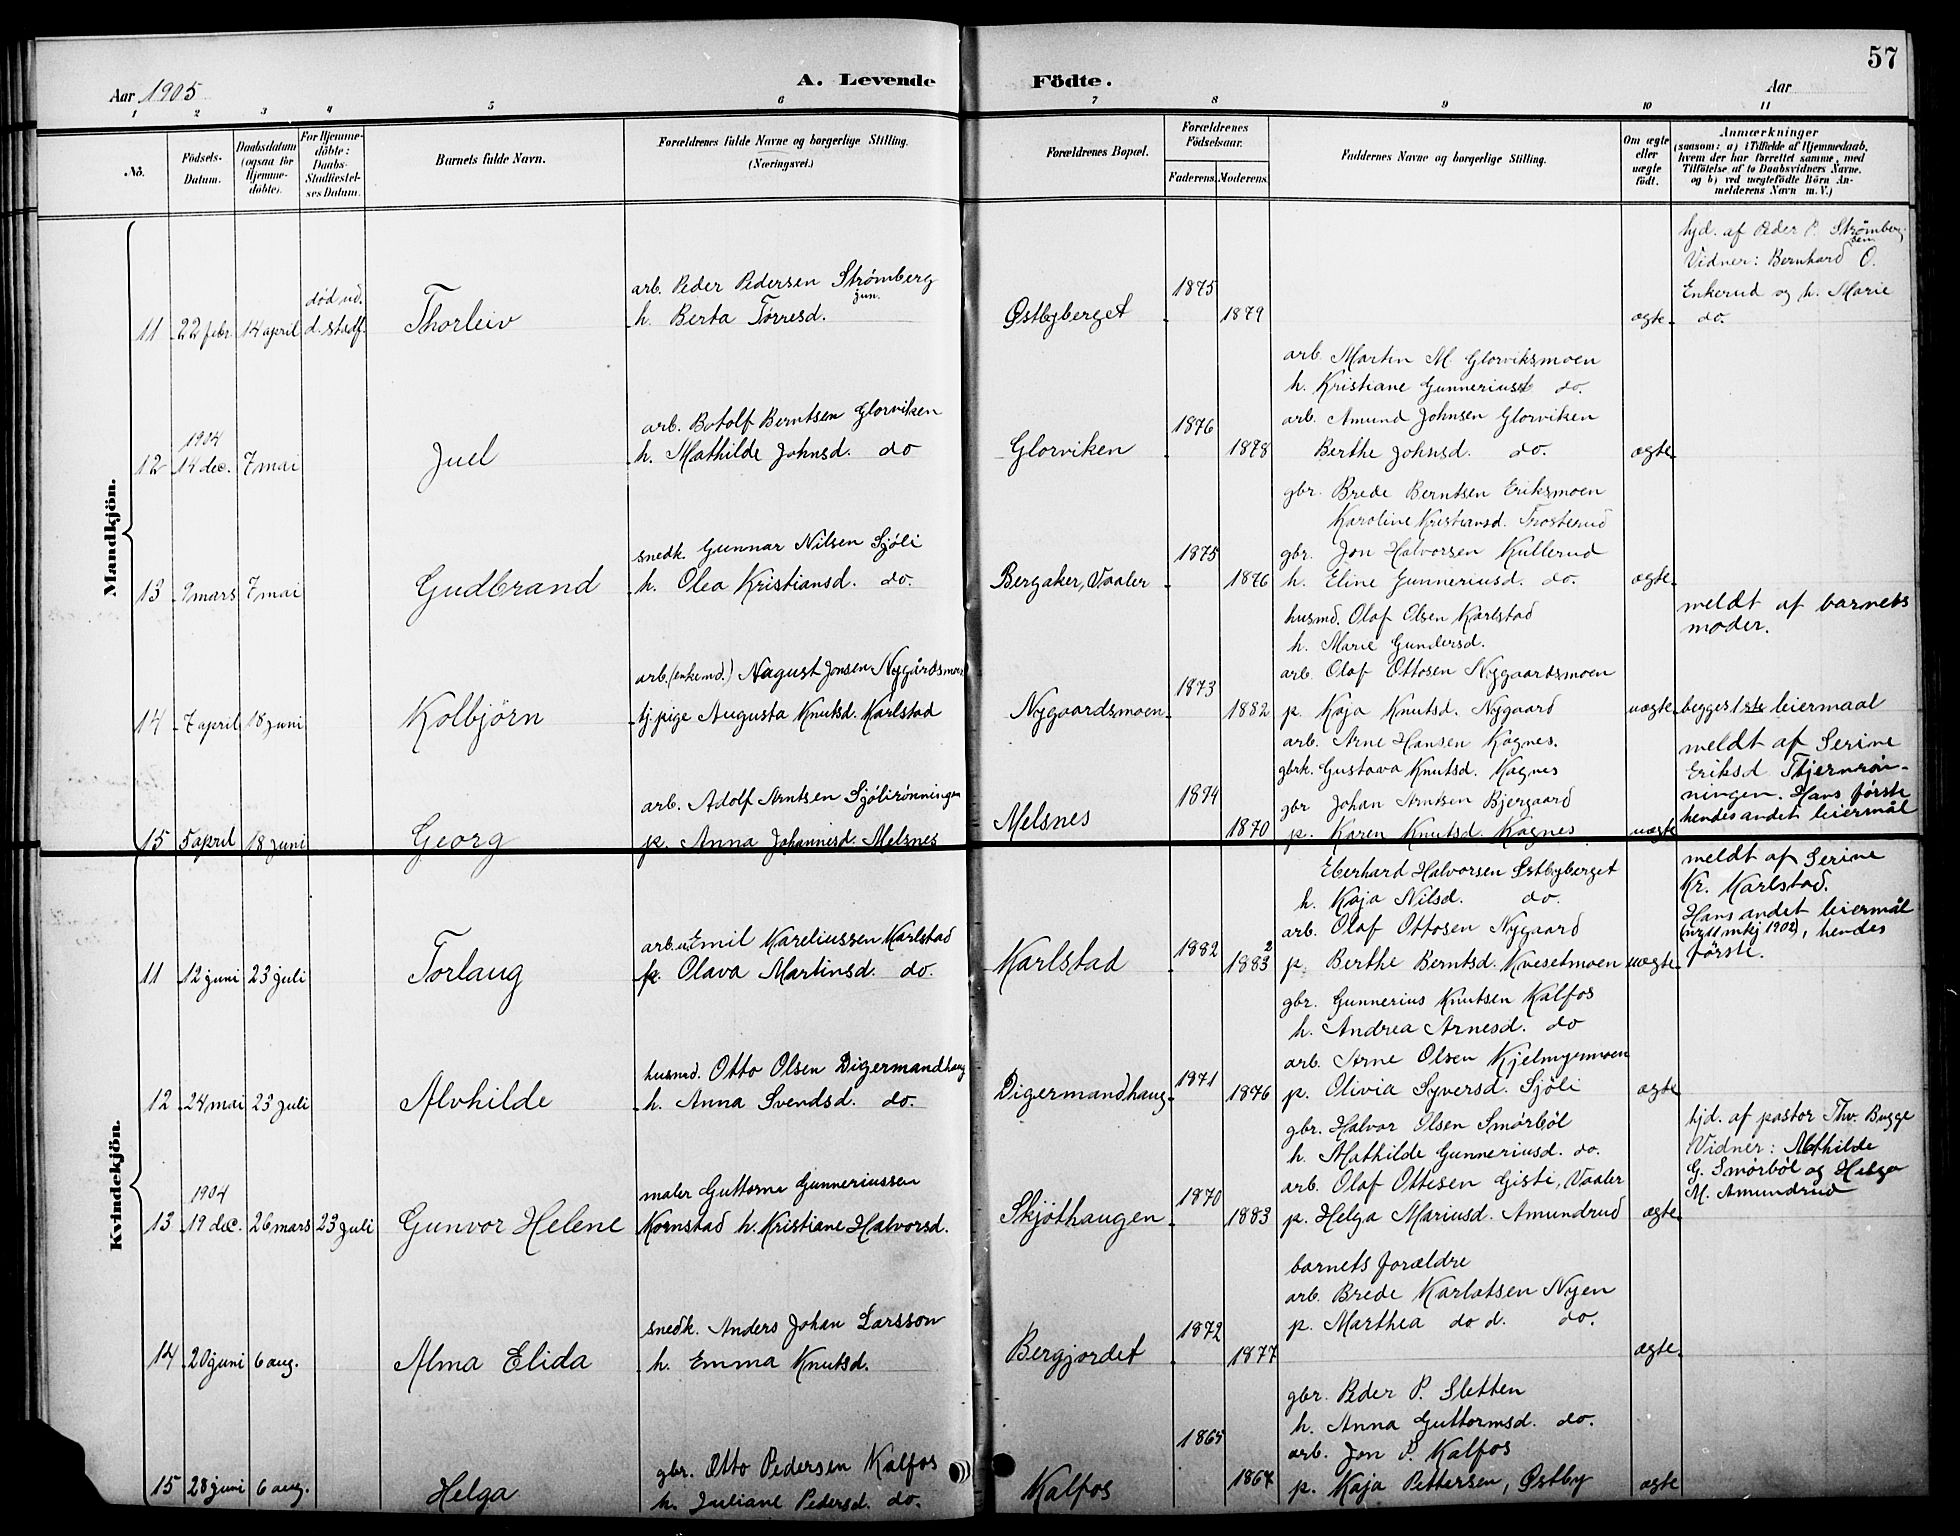 57
Aar 1905
A. Levende Födte.
Aar
1 2 3 4 5 6 7 8 9 10 11
No.
Födsels-Datum.
Daabsdatum (ogsaa for Hjemme-döbte).
For Hjemme-döbte: Daabs-Stadfæstel-ses Datum.
Barnets fulde Navn.
Forældrenes fulde Navne og borgerlige Stilling. (Næringsvei.)
Forældrenes Bopæl.
Forældrenes Födselsaar.
Faderens. Moderens.
Faddernes Navne og borgerlige Stilling.
Om ægte eller uægte födt.
Anmærkninger
(saasom: a) i Tilfælde af Hjemmedaab, hvem der har forrettet samme, med Tilföielse af to Daabsvidners Navne. og b) ved uægtefödte Börn An-melderens Navn m. V.)
Mandkjön.
11 22 febr. 14 april død ud. d. stadf. Thorleiv
arb. Peder Pedersen Strømberg jun.
h. Berta Tørresd.
Østbyberget 1875 1879 ægte
hjd. af Peder P. Strømberg sen.
Vidner: Bernhard O.
Enkerud og h. Marie
do.
12 1904 14 dec. 7 mai Juel
arb. Botolf Berntsen Glorviken
h. Mathilde Johnsd. do
Glorviken 1876 1878
arb. Martin M. Glorviksmoen
h. Kristiane Gunneriusd do.
arb. Amund Johnsen Glorviken
Berthe Johnsd. do. ægte
13 9 mars 7 mai Gudbrand
snedk. Gunnar Nilsen Sjöli
h. Olea Kristiansd. do.
Bergaker, Vaaler 1875 1876
gbr. Brede Berntsen Eriksmoen
Karoline Kristiansd. Trosterud
gbr. Jon Halvorsen Kullerud
h. Eline Gunneriusd. do. ægte
14 7 april 18 juni Kolbjörn
arb. (enkemd.) August Jonsen Nygårdsmoen
tj. pige Augusta Knutsd. Karlstad
Nygaardsmoen 1873 1882
husmd. Olaf Olsen Karlstad
h. Marie Gundersd.
arb. Olaf Ottosen Nygaardsmoen
p. Kaja Knutsd. Nygaard uægte
meldt af barnets
moder.
begges 1ste leiermaal
15 5 april 18 juni Georg
arb. Adolf Arntsen Sjölirönningen
p. Anna Johannesd. Melsnes
Melsnes 1874 1870
arb. Arne Hansen Kagnes.
gbrk. Gustava Knutsd. Kagnes
gbr Johan Arntsen Bjergaard
p. Karen Knutsd. Kagnes uægte
meldt af Serine
Eriksd Tjernrön-
ningen. Hans første
hendes andet leiermål
Kvindekjön.
11 12 juni 23 juli Torlaug
arb. Emil Kareliussen Karlstad
p. Olava Martinsd. do.
Karlstad 1882 1883 2
Eberhard Halvorsen Østbyberget
h. Kaja Nilsd. do.
arb. Olaf Ottosen Nygaard
p. Berthe Berntsd. Kvesetmoen uægte
meldt af Serine
Kr. Karlstad.
Hans andet leiermål
(nr 11 mkj 1902), hendes
første.
12 24 mai 23 juli Alvhilde
husmd. Otto Olsen Digermandhaug
h. Anna Svendsd. do.
Digermandhaug 1871 1876
gbr. Gunnerius Knutsen Kalfos
h. Andrea Arnesd. do
arb. Arne Olsen Kjelmyrmoen
p. Olivia Syversd. Sjöli ægte
13 1904 19 dec. 26 mars 23 juli Gunvor Helene
maler Guttorm Gunneriussen
Kornstad h. Kristiane Halvorsd.
Skjöthaugen 1870 1883
gbr. Halvor Olsen Smörböl
h. Mathilde Gunneriusd. do.
arb. Olaf Ottesen Gisti, Vaaler
p. Helga Mariusd. Amundrud ægte
hjd. af pastor Thv. Bugge
Vidner: Mathilde
G. Smörböl og Helga
M. Amundrud
14 20 juni 6 aug. Alma Elida
snedk. Anders Johan Larsson
h. Emma Knutsd.
Bergjordet 1872 1877
barnets forældre
arb. Brede Karlotsen Nyen
p. Marthea do d. do.
ægte
15 28 juni 6 aug. Helga
gbr. Otto Pedersen Kalfos
h. Juliane Pedersd. do.
Kalfos 1865 1867
gbr. Peder P. Sletten
h. Anna Guttormsd. do.
arb. Jon P. Kalfos
p. Kaja Pettersen, Østby ægte